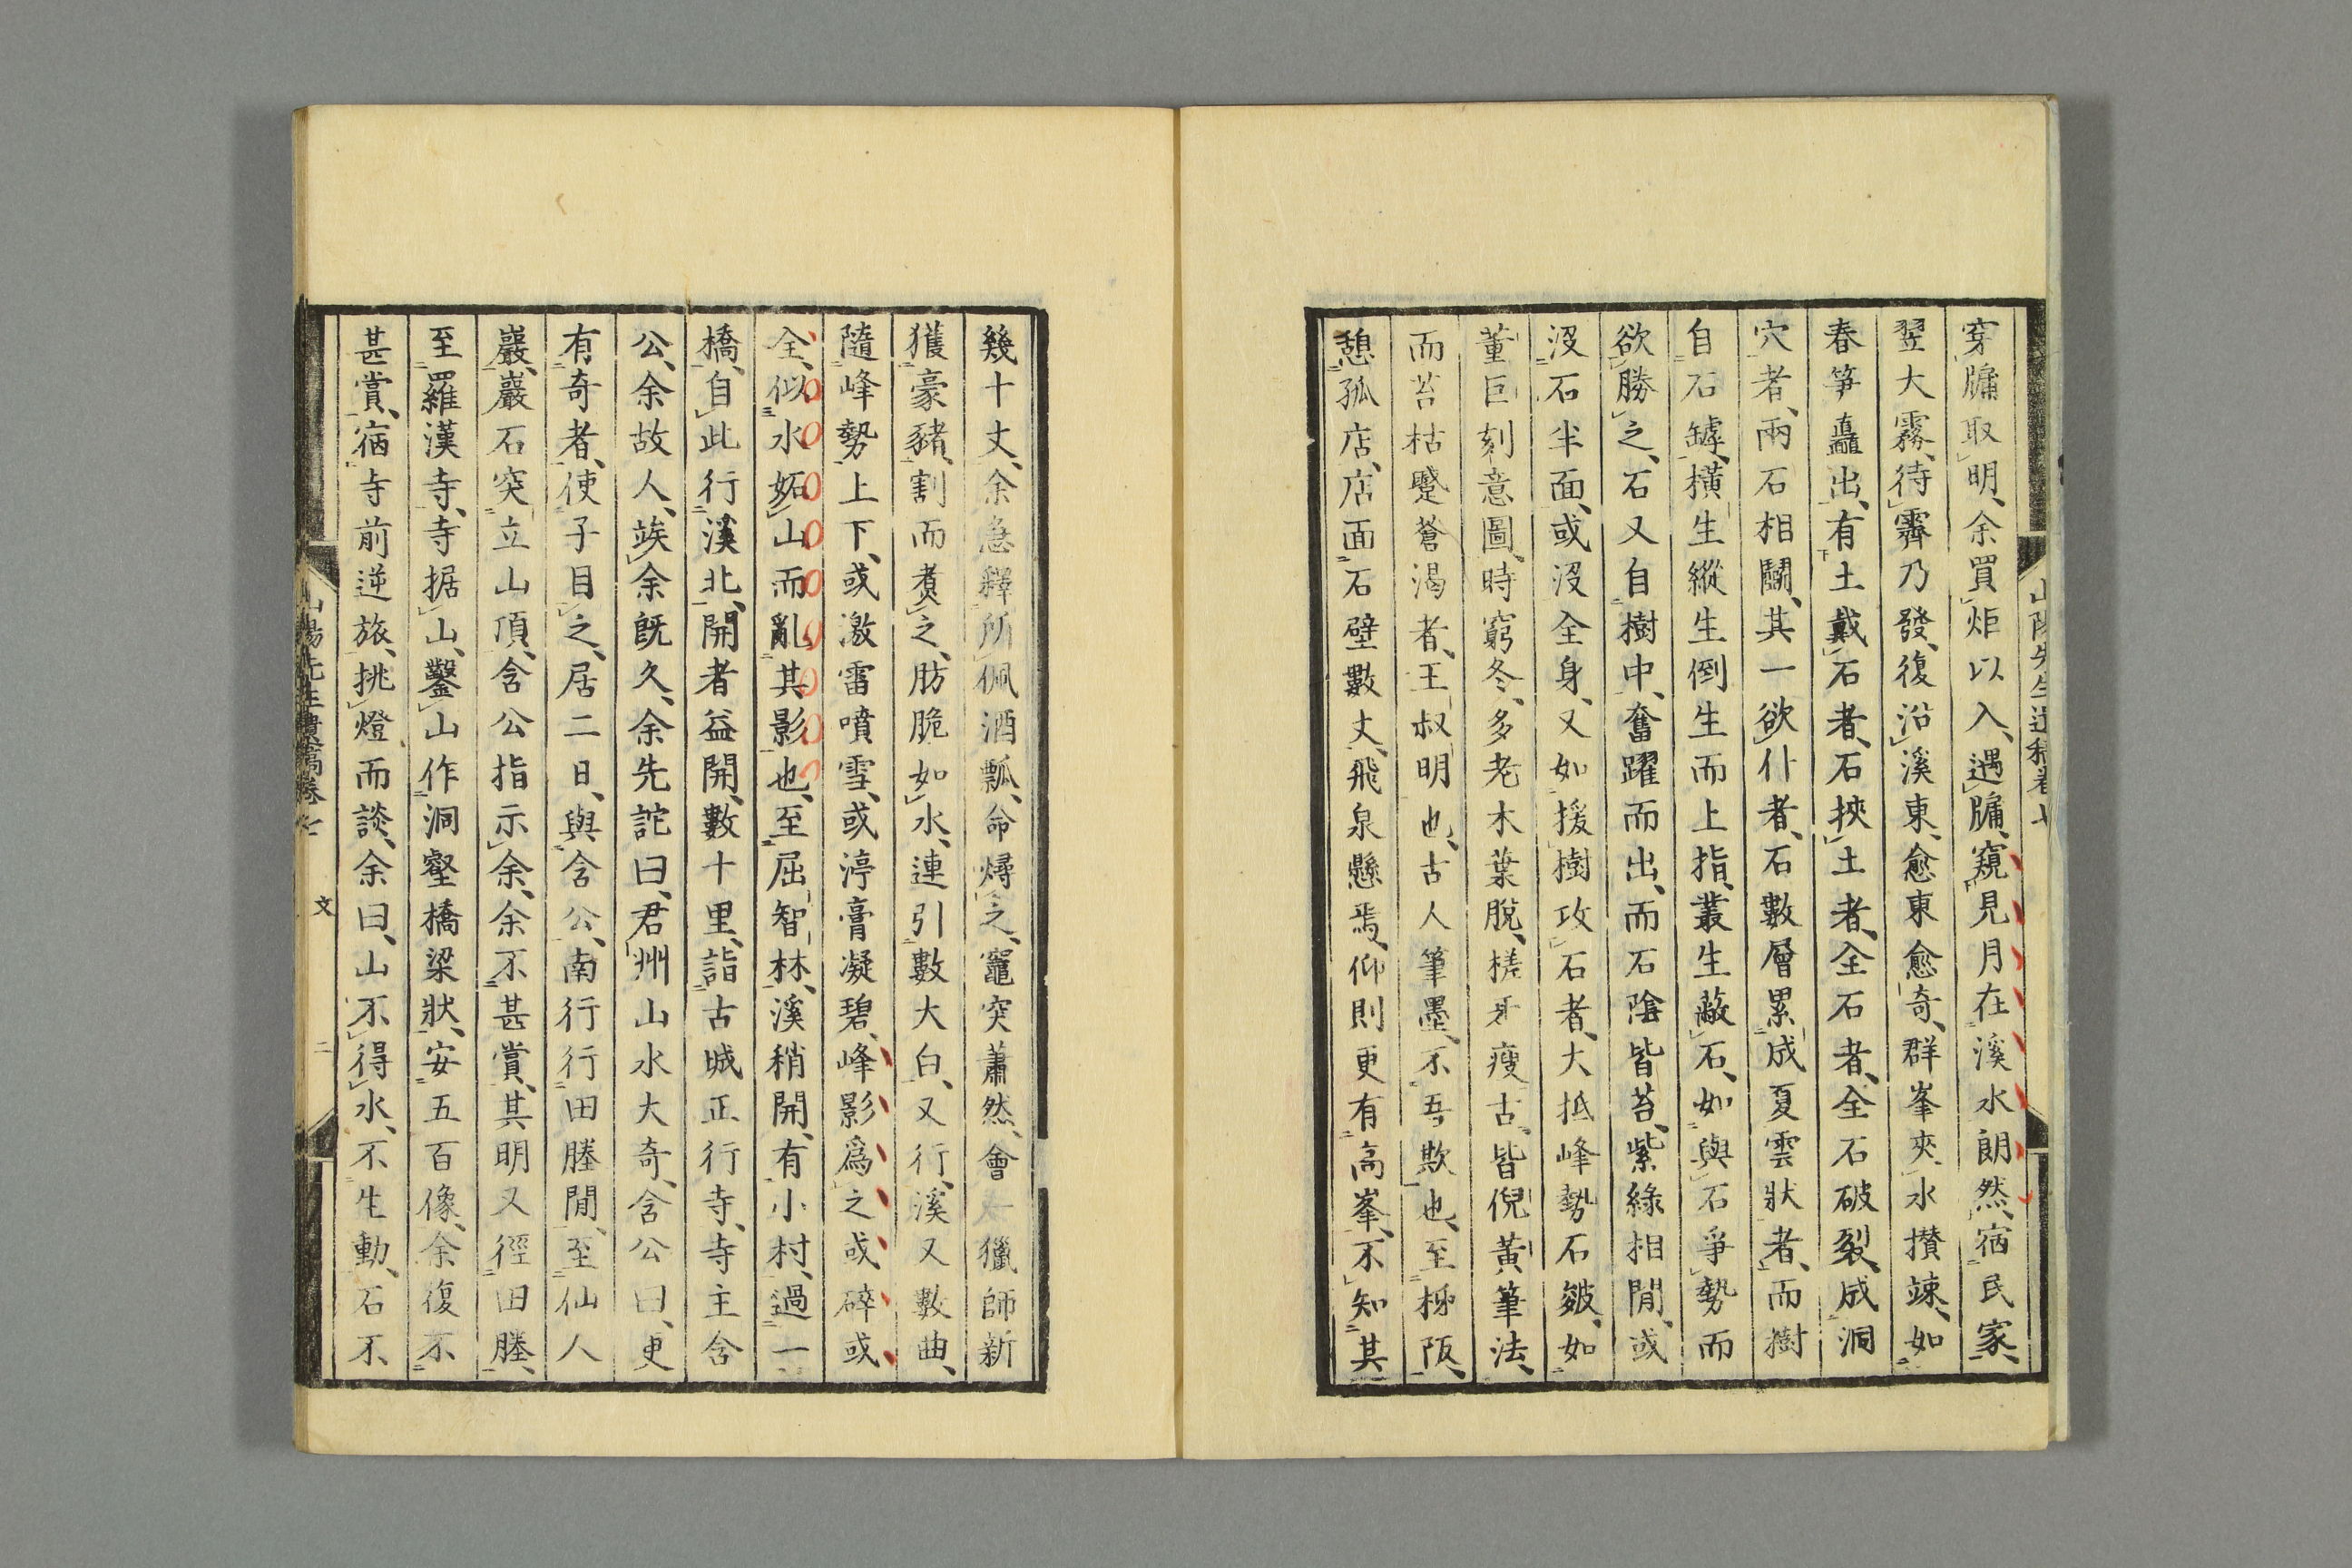 山陽先生遺稿卷七
穿牖取明、余買炬以入、遇牖、窺見月在溪水朗然、宿民家、
翌大霧、待霽乃發、復沿溪東、愈東愈奇、群峯夾水攅竦、如
春笋矗出、有土戴石者、石挾土者、全石者、全石破裂、成洞
穴者、兩石相鬭、其一欲仆者、石數層累成夏雲狀者、而樹
自石罅、橫生縱生倒生而上指、叢生蔽石、如與石爭勢而
欲勝之、石又自樹中、奮躍而出、而石陰皆苔、紫綠相閒、或
沒石半面、或沒全身、又如援樹攻石者、大抵峰勢石皴、如
董巨刻意圖、時窮冬、多老木葉脫、槎牙瘦古、皆倪黃筆法、
而苔枯蹙蒼渴者、王叔明也、古人筆墨、不吾欺也、至柹阪、
憩孤店、店面石壁數丈、飛泉懸焉、仰則更有高峯、不知其
幾十丈、余急釋所佩酒瓢、命燖之、竈突蕭然、會一獵師新
獲豪豬、割而煑之、肪脆如水、連引數大白、又行、溪又數曲、
隨峰勢上下、或激雷噴雪、或渟膏凝碧、峰影爲之或碎或
全、似水妬山而亂其影也、至屈智林、溪稍開、有小村、過一
橋、自此行溪北、開者益開、數十里、詣古城正行寺、寺主含
公、余故人、竢余旣久、余先詫曰、君州山水大奇、含公曰、更
有奇者、使子目之、居二日、與含公、南行行田塍閒、至仙人
巖、巖石突立山頂、含公指示余、余不甚賞、其明又徑田塍、
至羅漢寺、寺据山、鑿山作洞壑橋梁狀、安五百像、余復不
甚賞、宿寺前逆旅、挑燈而談、余曰、山不得水、不生動、石不
山陽先生遺稿卷七 文 二